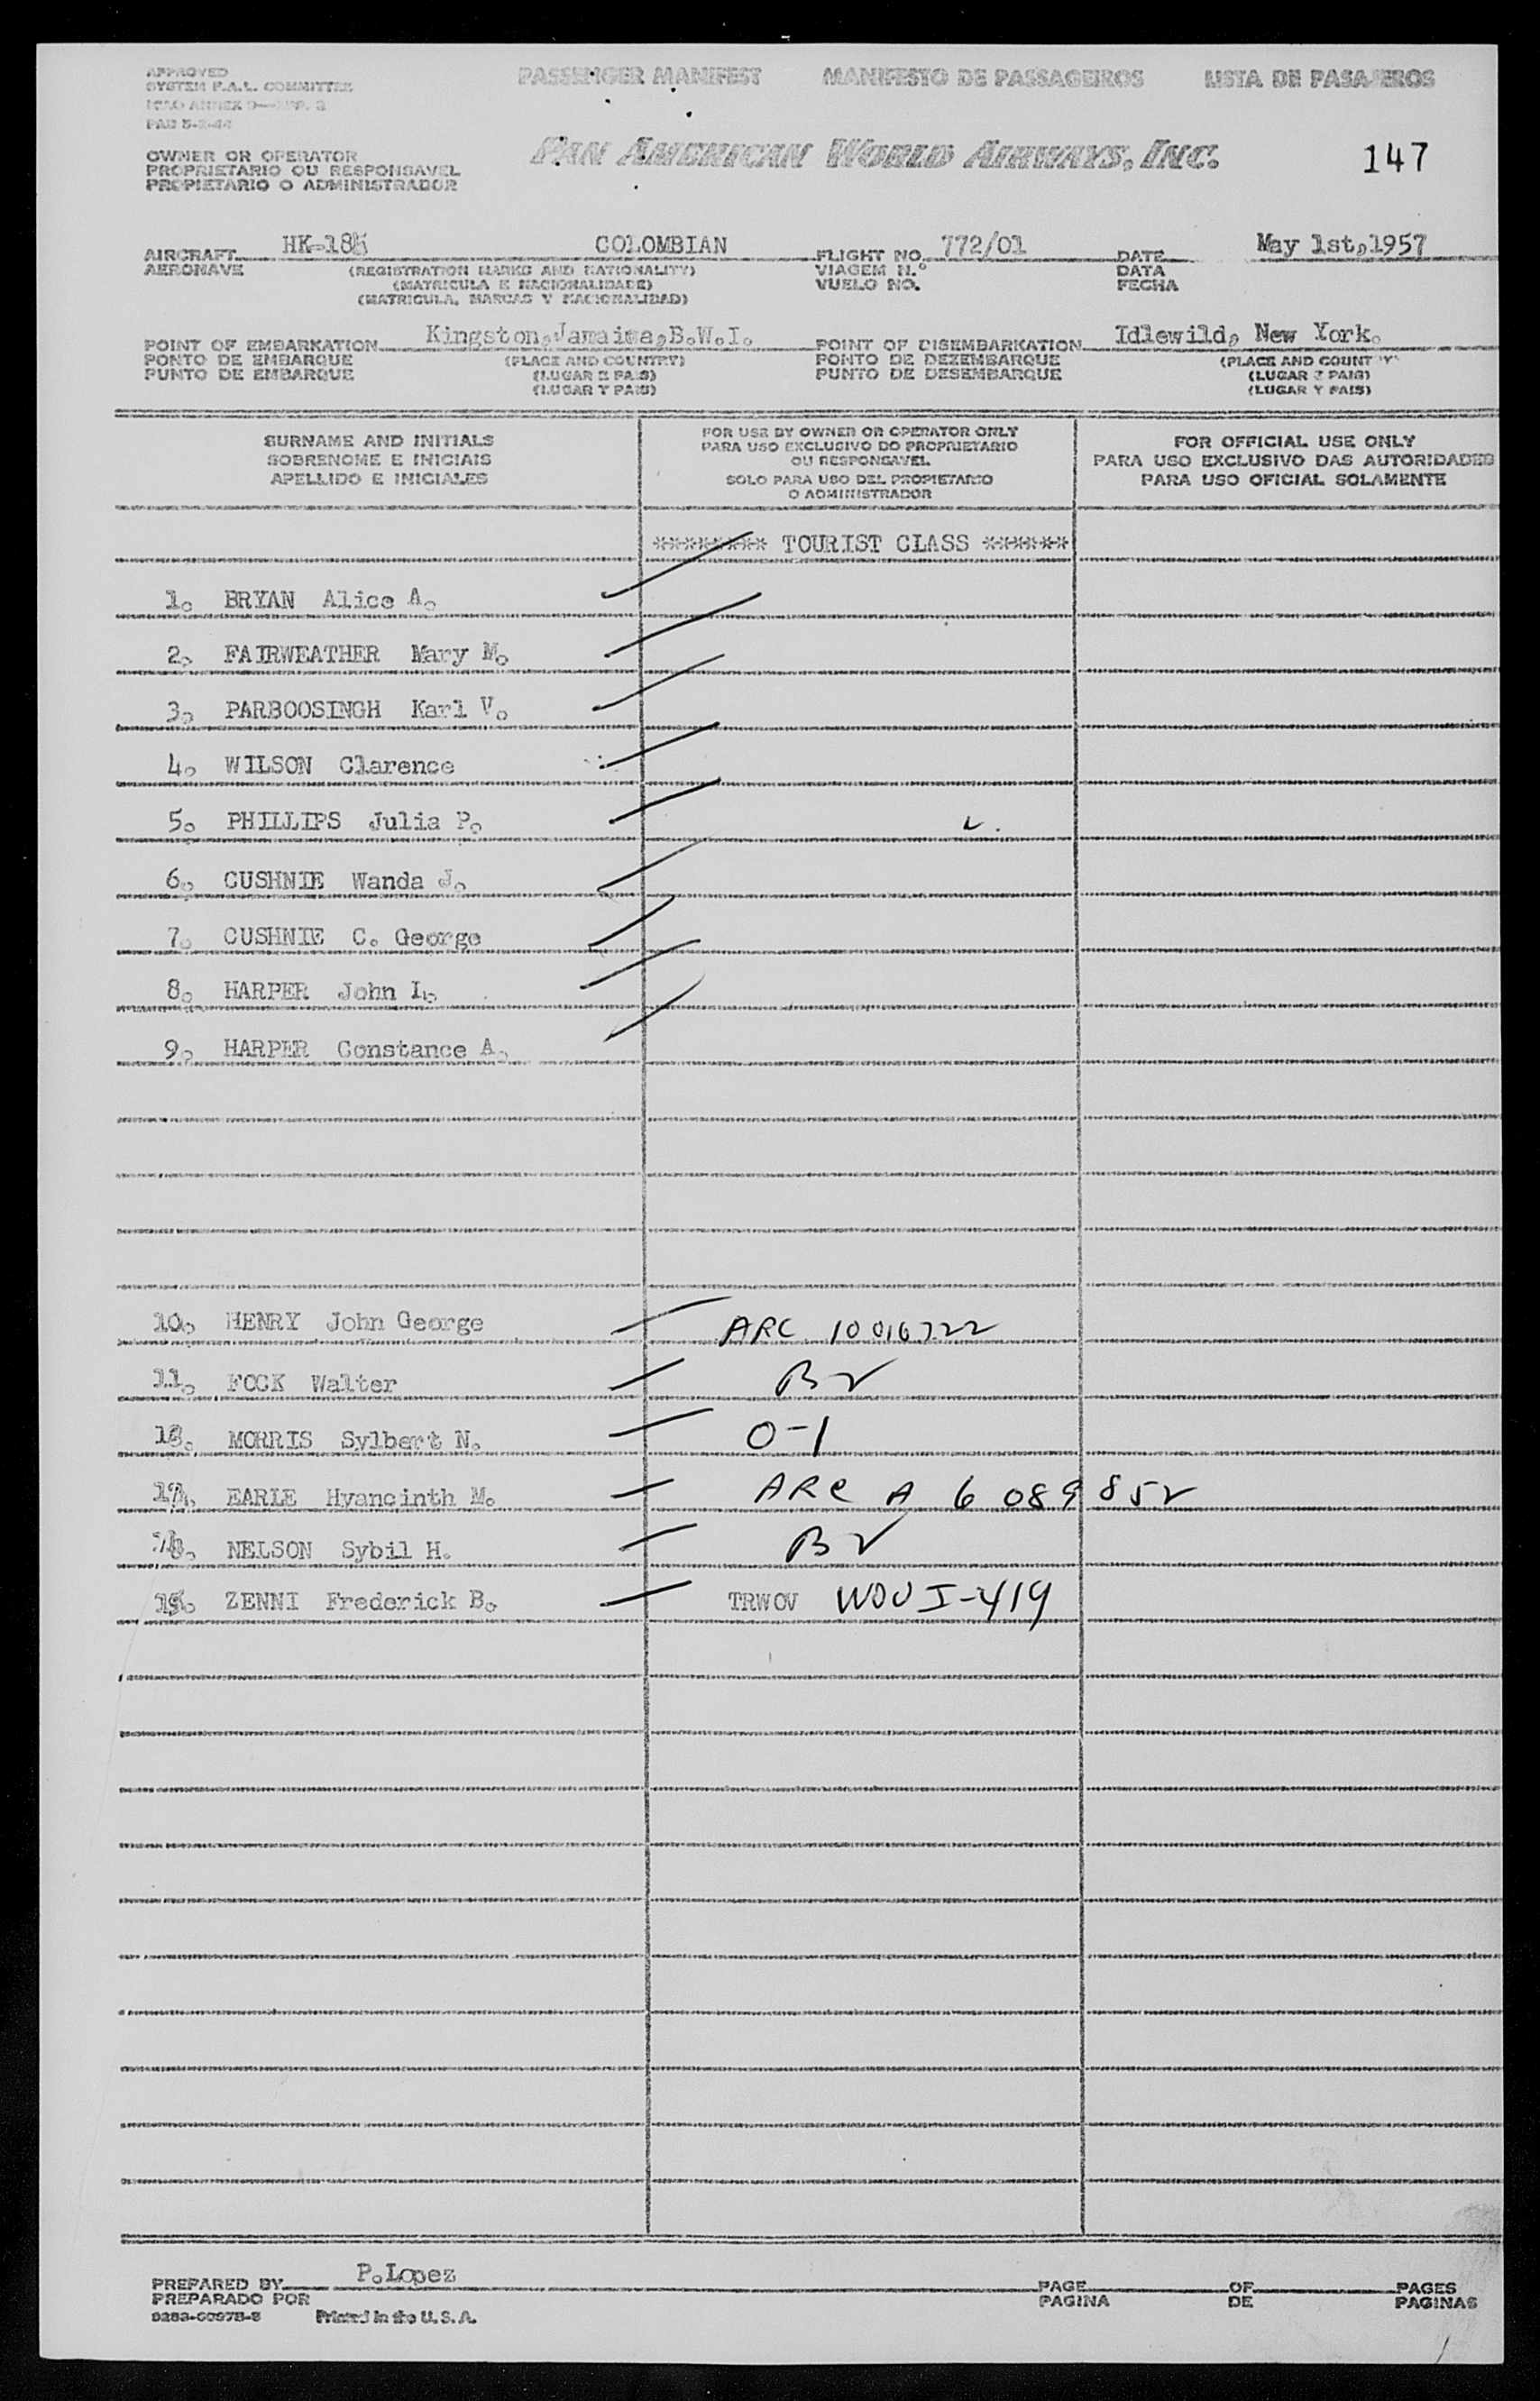 APPROVED
SYSTEM P.A.L. COMMITTEE
ICAO ANNEX 9
PASSENGER MANIFEST MANIFESTO DE PASSAGEIROS LISTA DE PASAJEROS
OWNER OR OPERATOR
PROPRIETARIO OU RESPONSAVEL
PROPIETARIO O ADMINISTRADOR
PAN AMERICAN WORLD AIRWAYS, INC.
147
AIRCRAFT HK-185 COLOMBIAN FLIGHT NO. 772/01 DATE May 1st,1957
AERONAVE (REGISTRATION MARKS AND NATIONALITY) VIAGEM N.º DATA
(MATRICULA E NACIONALIDADE) VUELO NO. FECHA
(MATRICULA, MARCAS Y NACIONALIDAD)
POINT OF EMBARKATION Kingston,Jamaica,B.W.I. POINT OF DISEMBARKATION Idlewild, New York.
PONTO DE EMBARQUE (PLACE AND COUNTRY) PONTO DE DEZEMBARQUE (PLACE AND COUNTRY)
PUNTO DE EMBARQUE (LUGAR E PAIS) PUNTO DE DESEMBARQUE (LUGAR E PAIS)
(LUGAR Y PAIS) (LUGAR Y PAIS)
SURNAME AND INITIALS
SOBRENOME E INICIAIS
APELLIDO E INICIALES
FOR USE BY OWNER OR OPERATOR ONLY
PARA USO EXCLUSIVO DO PROPRIETARIO
OU RESPONSAVEL
SOLO PARA USO DEL PROPIETARIO
O ADMINISTRADOR
FOR OFFICIAL USE ONLY
PARA USO EXCLUSIVO DAS AUTORIDADES
PARA USO OFICIAL SOLAMENTE
******** TOURIST CLASS ******
1. BRYAN Alice A.
2. FAIRWEATHER Mary M.
3. PARBOOSINGH Karl V.
4. WILSON Clarence
5. PHILLIPS Julia P.
6. CUSHNIE Wanda J.
7. CUSHNIE C. George
8. HARPER John L.
9. HARPER Constance A.
10. HENRY John George ARC 10016722
11. FOCK Walter B2
MORRIS Sylbert N. O-1
EARLE Hyancinth M. ARC A 6 089 852
NELSON Sybil H. B2
15. ZENNI Frederick B. TRWOV WOV I-419
PREPARED BY P.Lopez PAGE OF PAGES
PREPARADO POR PAGINA DE PAGINAS
Printed in the U.S.A.